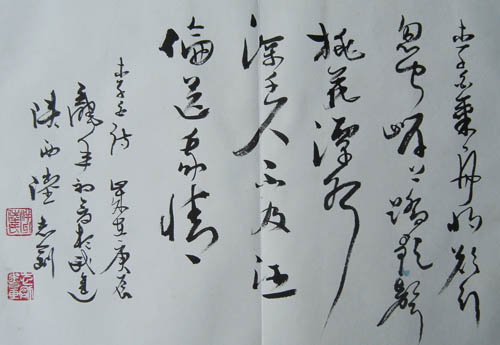 李白乘舟将欲行
忽闻岸上踏歌聲
桃花潭水
深千尺不及汪
倫送我情
李白诗 岁在庚辰
龍年初春於
陕西